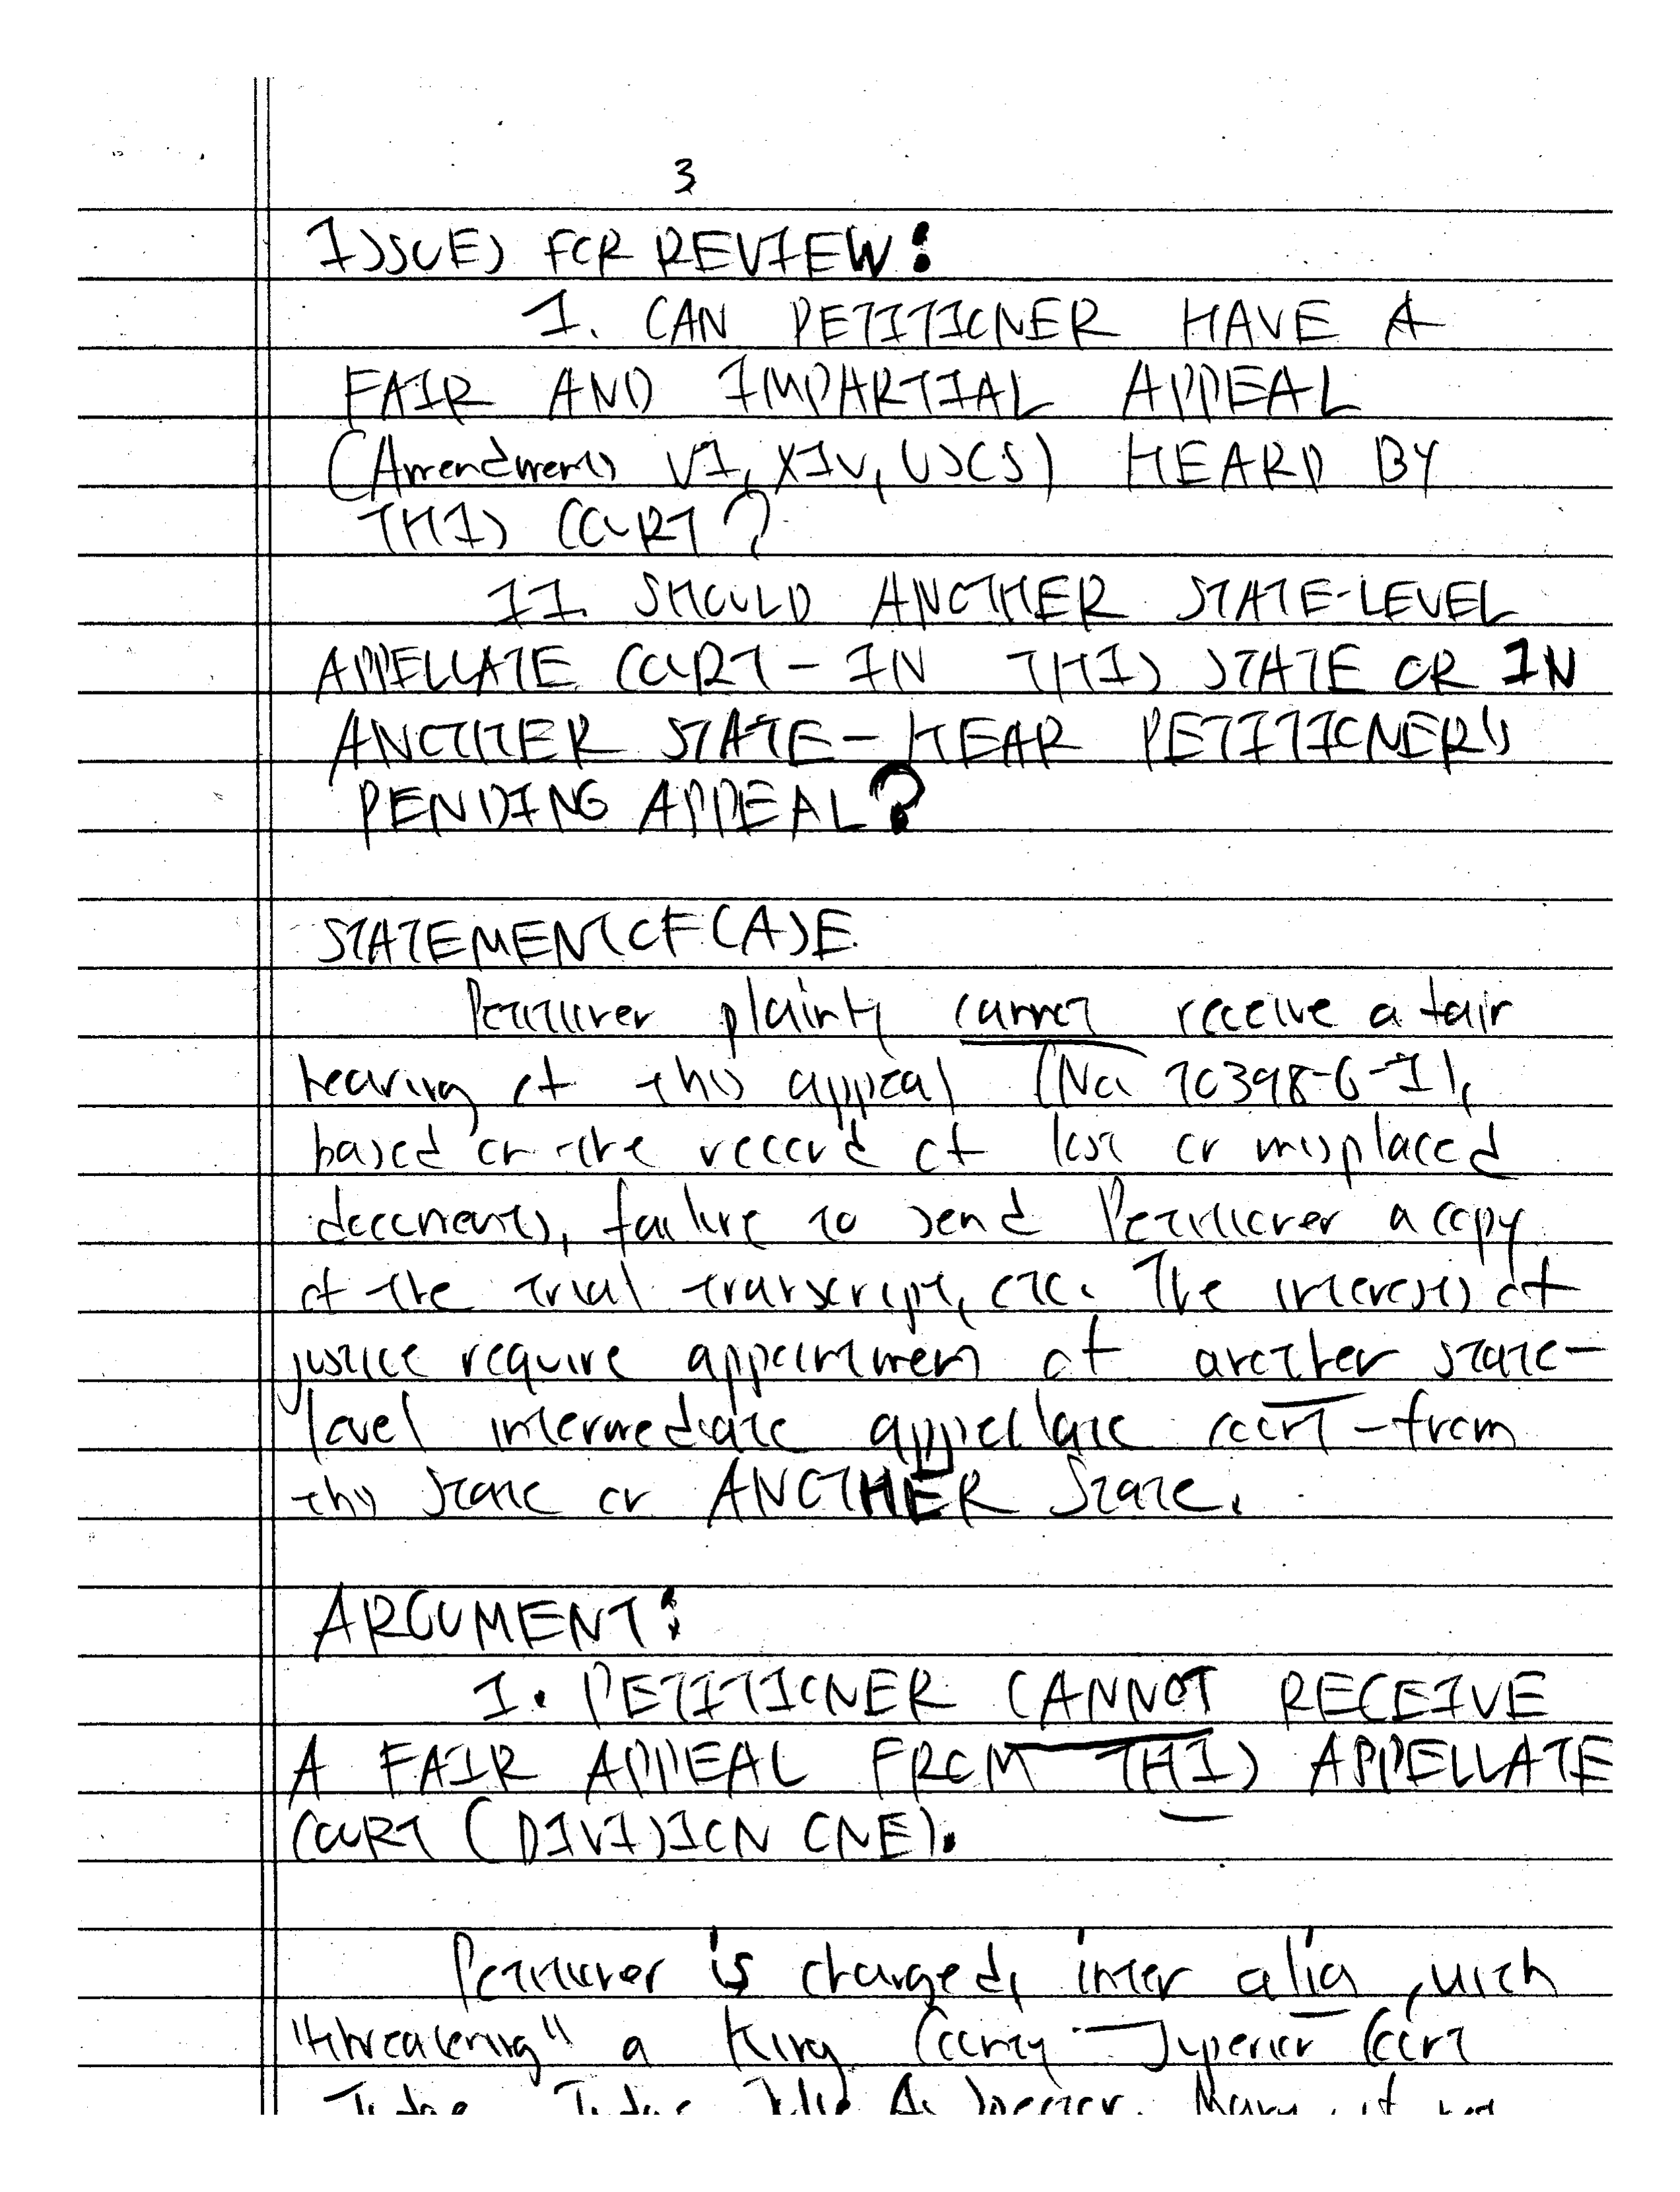 3
ISSUES FOR REVIEW:
I. CAN PETITIONER HAVE A
FAIR AND IMPARTIAL APPEAL
(Amendments VI, XIV, USCS) HEARD BY
THIS COURT?
II. SHOULD ANOTHER STATE-LEVEL
APPELLATE COURT - IN THIS STATE OR IN
ANOTHER STATE - HEAR PETITIONER'S
PENDING APPEAL?
STATEMENT OF CASE
Petitioner plainly cannot receive a fair
hearing of this appeal (No. 70398-6-I),
based on the record of lost or misplaced
documents, failure to send Petitioner a copy
of the trial transcript, etc. The interests of
justice require appointment of another state-
level intermediate appellate court - from
this State or ANOTHER State.
ARGUMENT:
I. PETITIONER CANNOT RECEIVE
A FAIR APPEAL FROM THIS APPELLATE
COURT (DIVISION ONE).
Petitioner is charged, inter alia, with
"threatening" a King County Superior Court
Judge, Judge Julie A.